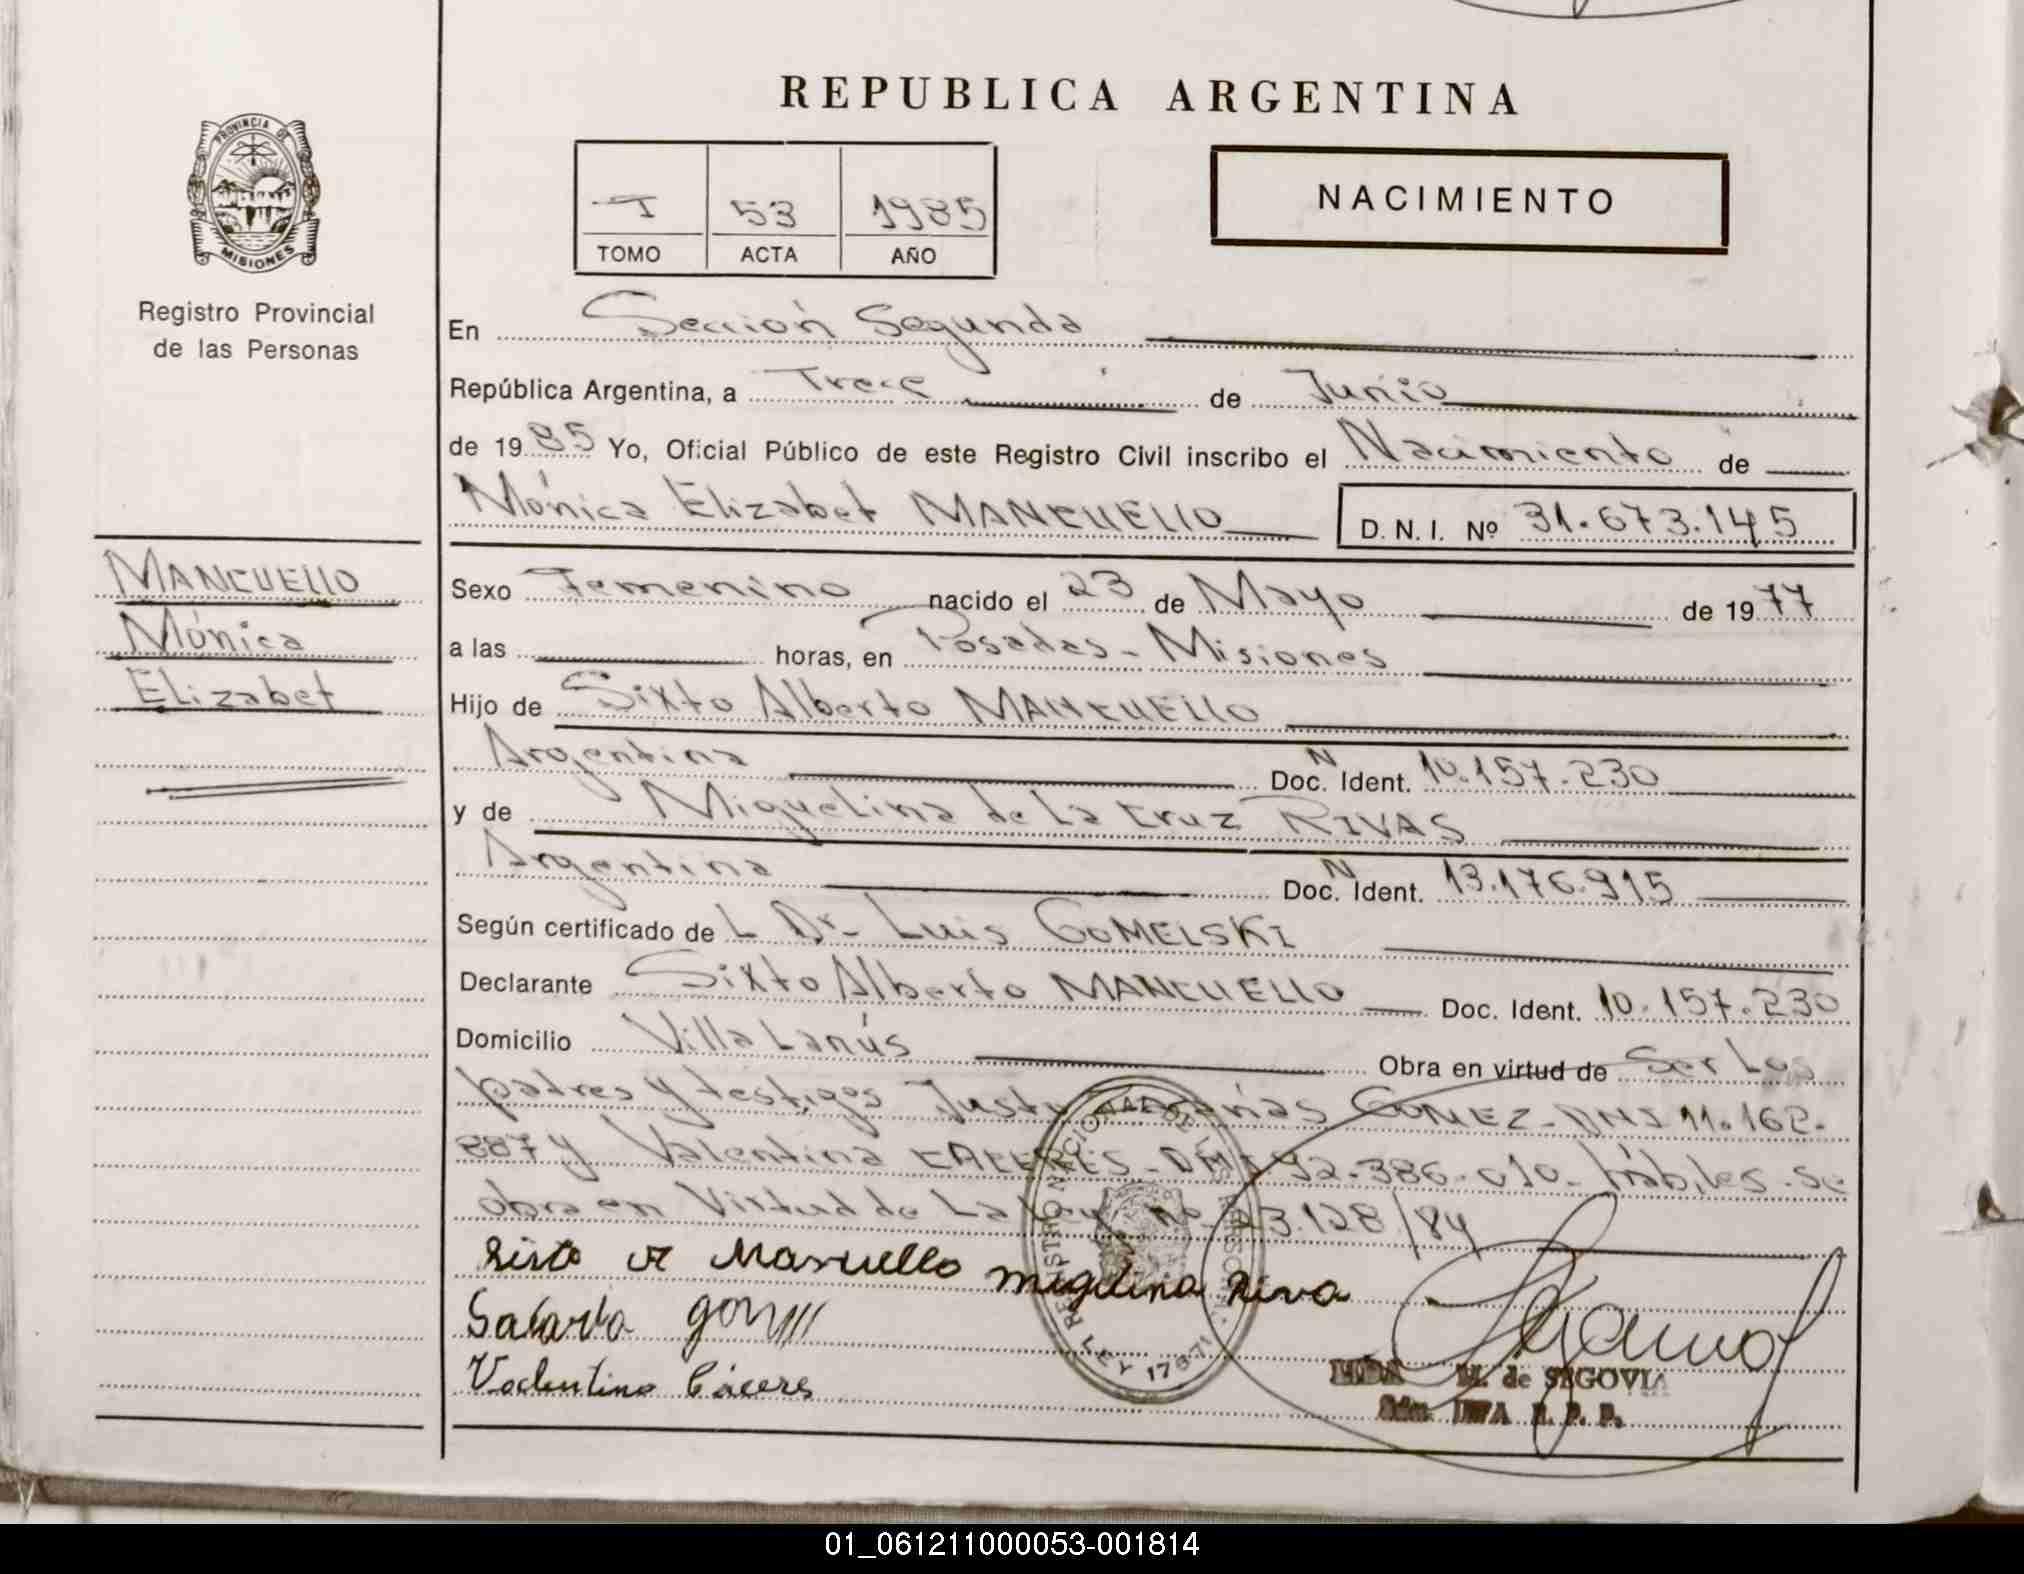 REPUBLICA ARGENTINA
PROVINCIA DE
MISIONES
Registro Provincial
de las Personas
I 53 1985
TOMO ACTA AÑO
NACIMIENTO
En Sección Segunda
República Argentina, a Trece de Junio
de 1985 Yo, Oficial Público de este Registro Civil inscribo el Nacimiento de
Mónica Elizabet MANCUELLO D. N. I. Nº 31.673.145
MANCUELLO
Mónica
Elizabet
Sexo Femenino nacido el 23 de Mayo de 1977
a las horas, en Posadas - Misiones
Hijo de Sixto Alberto MANCUELLO
Argentina Doc. N Ident. 10.157.230
y de Miguelina de La Cruz RIVAS
Argentina Doc. N Ident. 13.176.915
Según certificado de L Dr. Luis GOMELSKI
Declarante Sixto Alberto MANCUELLO Doc. Ident. 10.157.230
Domicilio Villa Lanús Obra en virtud de Ser Los
padres y testigos Justo GOMEZ - DNI 11.162.
887 y Valentina CACERES - DNI 92.386.010 - hábiles - se
obra en Virtud de La Ley nº 23.128/84
Sixto A Mancuello Migelina Riva
Valentina Cáceres
REGISTRO NACIONAL DE LAS PERSONAS
LEY 17671
M. de SEGOVIA
R. P. P.
01_061211000053-001814